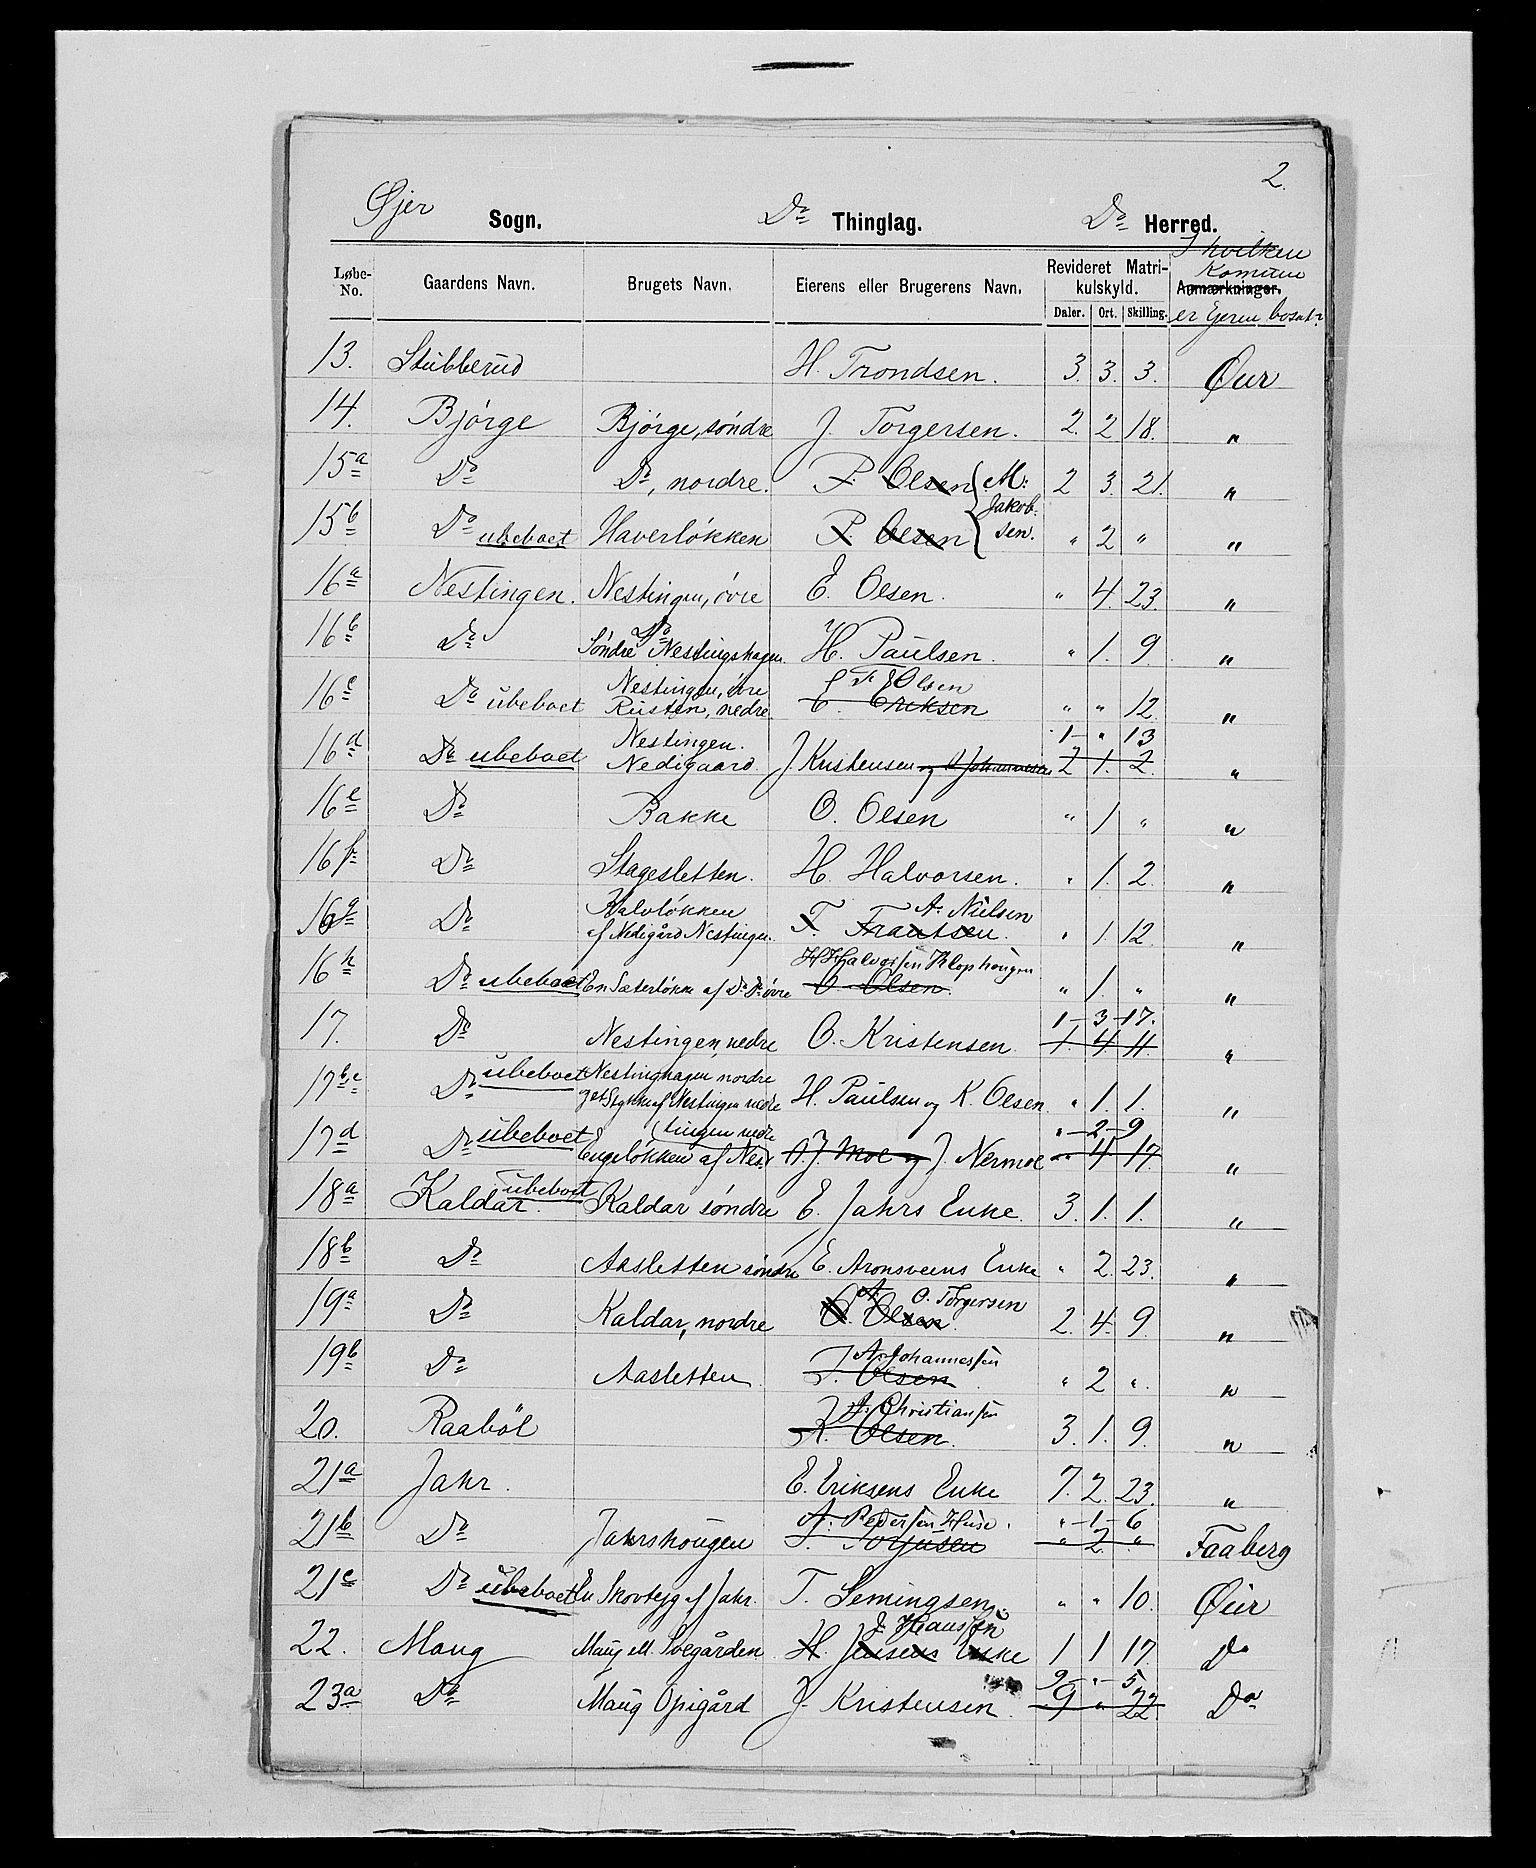 2.
Øjer Sogn. Do Thinglag. Do Herred.
Løbe-No. Gaardens Navn. Brugets Navn. Eierens eller Brugerens Navn. Revideret Matrikulskyld. Daler. Ort. Skilling. Anmærkninger. I hvilken Komune er Ejeren bosat?
13. Stubberud H. Trondsen. 3. 3. 3. Öier
14. Bjørge Bjørge, søndre J. Torgersen. 2. 2 18. "
15a Do Do, nordre. P. Olsen { M. Jakobsen. 2 3. 21. "
15b Do ubeboet Haverløkken P. Olsen " 2 " "
16a Nestingen. Nestingen, øvre E. Olsen. " 4. 23. "
16b Do Søndre Do Nestingshagen H. Paulsen. " 1. 9. "
16c Do ubeboet Nestingen, øvre Rusten, nedre. E. Eriksen Olsen " " 12 "
16d Do ubeboet Nestingen. Nedigaard. J. Kristensen og O Johannesen 2 1. 2. 1 - " 13 "
16e Do Bakke O. Olsen " 1 " "
16f Do Stagesletten. H. Halvorsen. " 1. 2. "
16g Do Kalvløkken af Nedigård Nestingen. T. Frantsen. A. Nielsen " 1. 12. "
16h Do ubeboet En Sæterløkke af Do Do øvre O Olsen. H Halvorsen Klophougen " 1. " "
17. Do Nestingen, nedre O. Kristensen. 1. 4 11. 1 - 3 - 17. "
17b,c Do ubeboet Nestinghagen nordre af Nestingen nedre H. Paulsen og K. Olsen. " 1. 1. "
17d Do ubeboet Engeløkken af Nestingen nedre O. J. Moe og J. Nermoe " 4 17. " - 2 - 9 "
18a Kaldar. ubeboet Kaldar søndre E. Jahrs Enke. 3. 1. 1. "
18b Do Aasletten søndre E. Aronsveens Enke " 2. 23. "
19a Do Kaldar, nordre O. Olsen. O. Torgersen 2. 4. 9. "
19b Do Aasletten J. Olsen A. Johannessen " 2 ". "
20. Raaböl K. Olsen. J. Christiansen 3. 1. 9. "
21a Jahr. E. Eriksens Enke 7. 2. 23. "
21b Do Jahrshougen T. Torjusen A. Pedersen Huse. " 2. " " - 1 - 6 Faaberg
21c Do ubeboet En Skovteig af Jahr. T. Semingsen. " " 10. Öier
22. Maug Maug M. Ivegården H. Jensens Enke J. Hanssen 1 1 17. Do
23a Do Maug Opigård J. Kristensen. 9 " 22. 9 - " - 5 Do